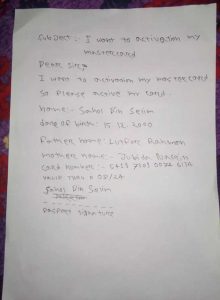 Subject:- I want to activation my
mastercard
Dear Sir,
I want to activation my mastercard
So please active my card.
name:- Sahos Din Selim
date of birth: 15.12.2000
Father name: Lutfore Rahman
mother name:- Jubida
card number:-
VALID THRU 08/24
Sahos Din Selim
passport signature